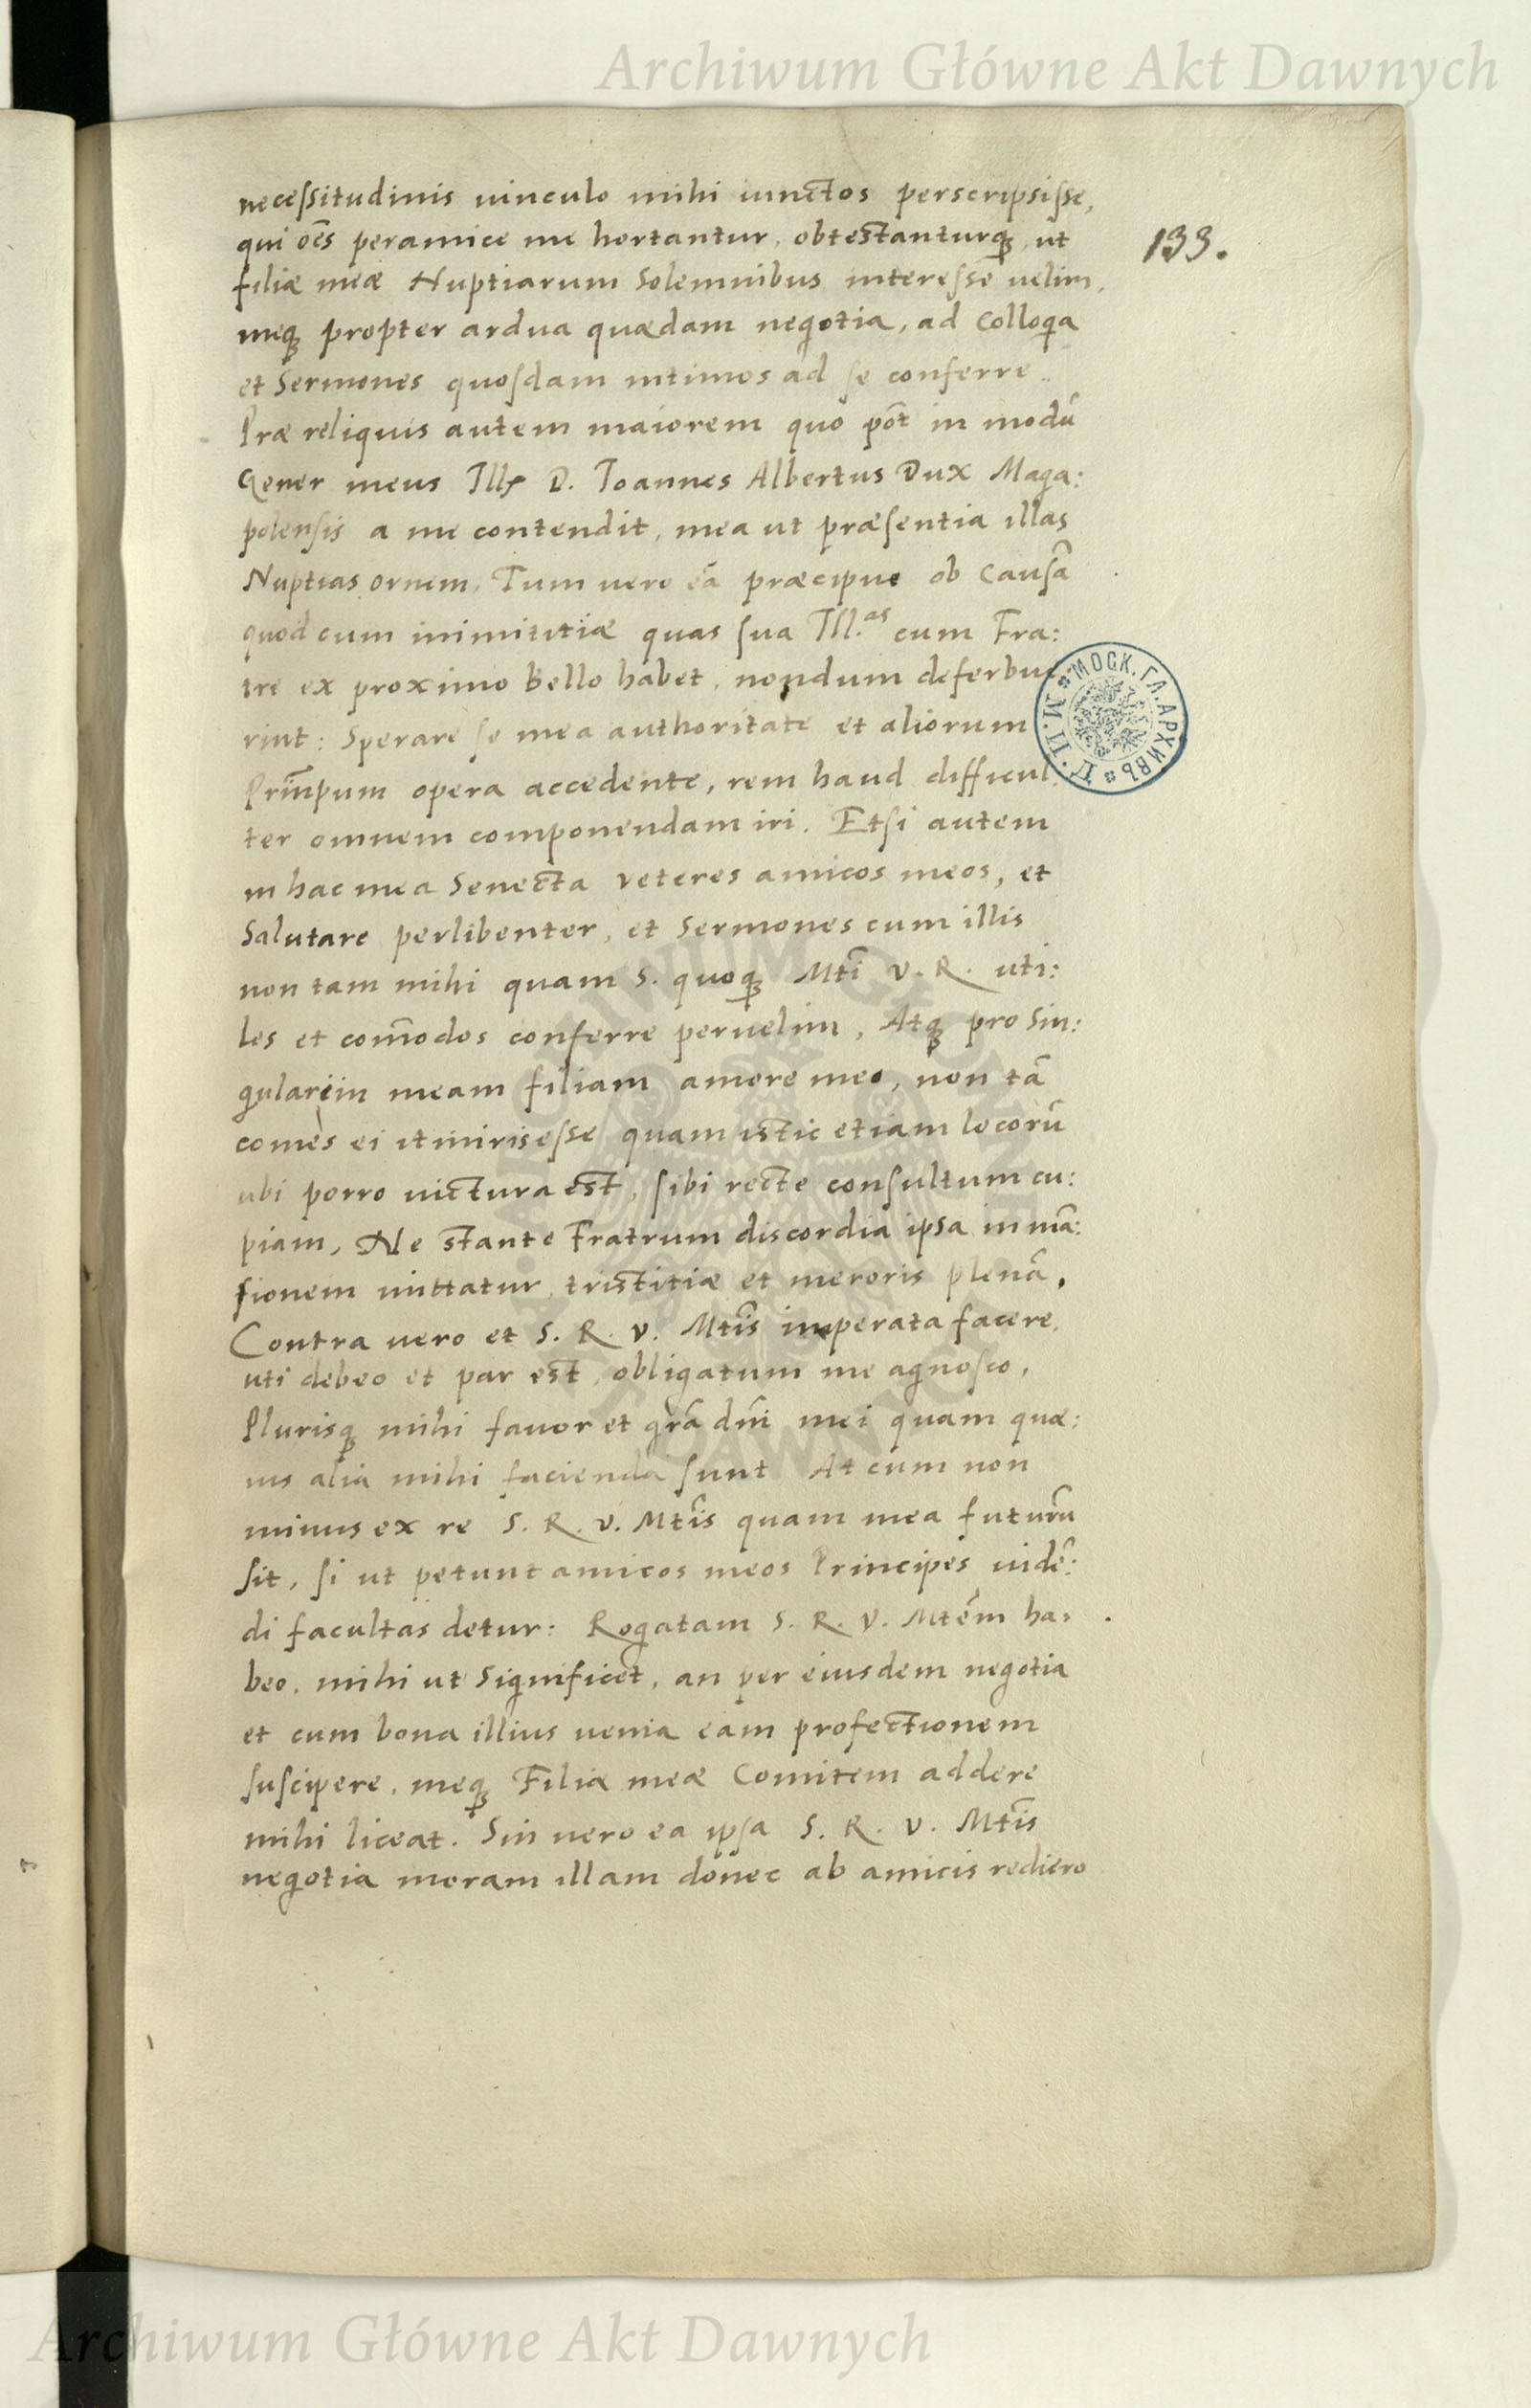 Archiwum Główne Akt Dawnych
necessitudinis uinculo mihi iunctos perscripsisse,
qui oēs peramice me hortantur, obtestanturq́ꝫ, ut
133.
filiæ meæ Nuptiarum Solemnibus interesse uelim,
meqꝫ propter ardua quædam negotia, ad Colloqia
et Sermones quosdam intimos ad se conferre.
Præ reliquis autem maiorem quo pōt in modū
Gener meus Ills D. Ioannes Albertus Dux Maga:
polensis a me contendit, mea ut præsentia illas
Nuptias ornem, Tum uero eā præcipue ob Causā
quod cum inimititiæ quas sua Ill.as cum Fra:
tre ex proximo Bello habet, nondum deferbue
rint: Sperare se mea authoritate et aliorum
Prin̄pum opera accedente, rem haud difficul
ter omnem componendam iri. Etsi autem
in hac mea Senecta veteres amicos meos, et
Salutare perlibenter, et Sermones cum illis
non tam mihi quam S. quoqꝫ Mtī V. R. uti:
les et com̄odos conferre peruelim, Atqꝫ pro Sin:
gulari in meam filiam amore meo, non tā
comes ei itinirisesse quam istic etiam locorū
ubi porro uictura est, sibi recte consultum cu:
piam, Ne stante Fratrum discordia ipsa in mā:
sionem mittatur tristitiæ et meroris plenā.
Contra uero et S. R. V. Mtīs imperata facere,
uti debeo et par est, obligatum me agnosco,
Plurisqꝫ mihi fauor et grā dn̄i mei quam quæ:
uis alia mihi facienda sunt At cum non
minus ex re S. R. V. Mtīs quam mea futurū
sit, si ut petunt amicos meos Principes uidē:
di facultas detur: Rogatam S. R. V. Mtēm ha:
beo, mihi ut Significet, an per eiusdem negotia
et cum bona illius uenia eam profectionem
suscipere, meqꝫ Filiæ meæ Comitem addere
mihi liceat. Sin uero ea ipsa S. R. V. Mtīs
negotia moram illam donec ab amicis rediero
МОСК. ГЛ. АРХИВЪ
Archiwum Główne Akt Dawnych